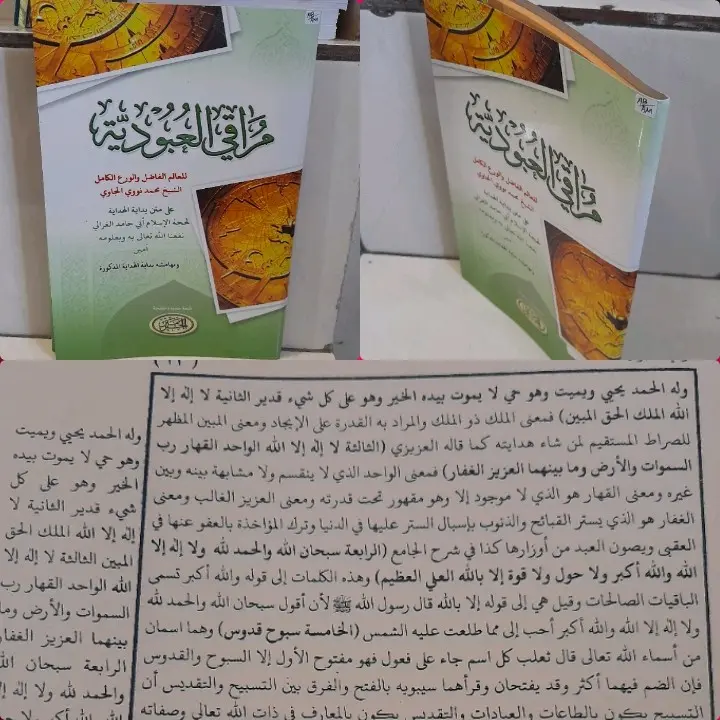 مراقي العبودية
للعالم الفاضل والورع الكامل
الشيخ محمد نووي الجاوي
على متن بداية الهداية
لحجة الإسلام أبي حامد الغزالي
نفعنا الله تعالى به وبعلومه
آمين
وبهامشه بداية الهداية المذكورة
مراقي العبودية
للعالم الفاضل والورع الكامل
الشيخ محمد نووي الجاوي
على متن بداية الهداية
لحجة الإسلام أبي حامد الغزالي
وبهامشه بداية الهداية المذكورة
وله الحمد يحيي ويميت وهو حي لا يموت بيده الخير وهو على كل شيء قدير الثانية لا إله إلا
الله الملك الحق المبين) فمعنى الملك ذو الملك والمراد به القدرة على الإيجاد ومعنى المبين المظهر
للصراط المستقيم لمن شاء هدايته كما قاله العزيزي (الثالثة لا إله إلا الله الواحد القهار رب
السموات والأرض وما بينهما العزيز الغفار) فمعنى الواحد الذي لا ينقسم ولا مشابهة بينه وبين
غيره ومعنى القهار هو الذي لا موجود إلا وهو مقهور تحت قدرته ومعنى العزيز الغالب ومعنى
الغفار هو الذي يستر القبائح والذنوب بإسبال الستر عليها في الدنيا وترك المؤاخذة بالعفو عنها في
العقبى ويصون العبد من أوزارها كذا في شرح الجامع (الرابعة سبحان الله والحمد لله ولا إله إلا
الله والله أكبر ولا حول ولا قوة إلا بالله العلي العظيم) وهذه الكلمات إلى قوله والله أكبر تسمى
الباقيات الصالحات وقيل هي إلى قوله إلا بالله قال رسول الله ﷺ لأن أقول سبحان الله والحمد لله
ولا إله إلا الله والله أكبر أحب إلى مما طلعت عليه الشمس (الخامسة سبوح قدوس) وهما اسمان
من أسماء الله تعالى قال ثعلب كل اسم جاء على فعول فهو مفتوح الأول إلا السبوح والقدوس
فإن الضم فيهما أكثر وقد يفتحان وقرأهما سيبويه بالفتح والفرق بين التسبيح والتقديس أن
التسبيح يكون بالطاعات والعبادات والتقديس يكون بالمعارف في ذات الله تعالى وصفاته
وله الحمد يحيي ويميت
وهو حي لا يموت بيده
الخير وهو على كل
شيء قدير الثانية لا
إله إلا الله الملك الحق
المبين الثالثة لا إله إلا
الله الواحد القهار رب
السموات والأرض وما
بينهما العزيز الغفار
الرابعة سبحان الله
والحمد لله ولا إله إلا
الله والله أكبر ولا